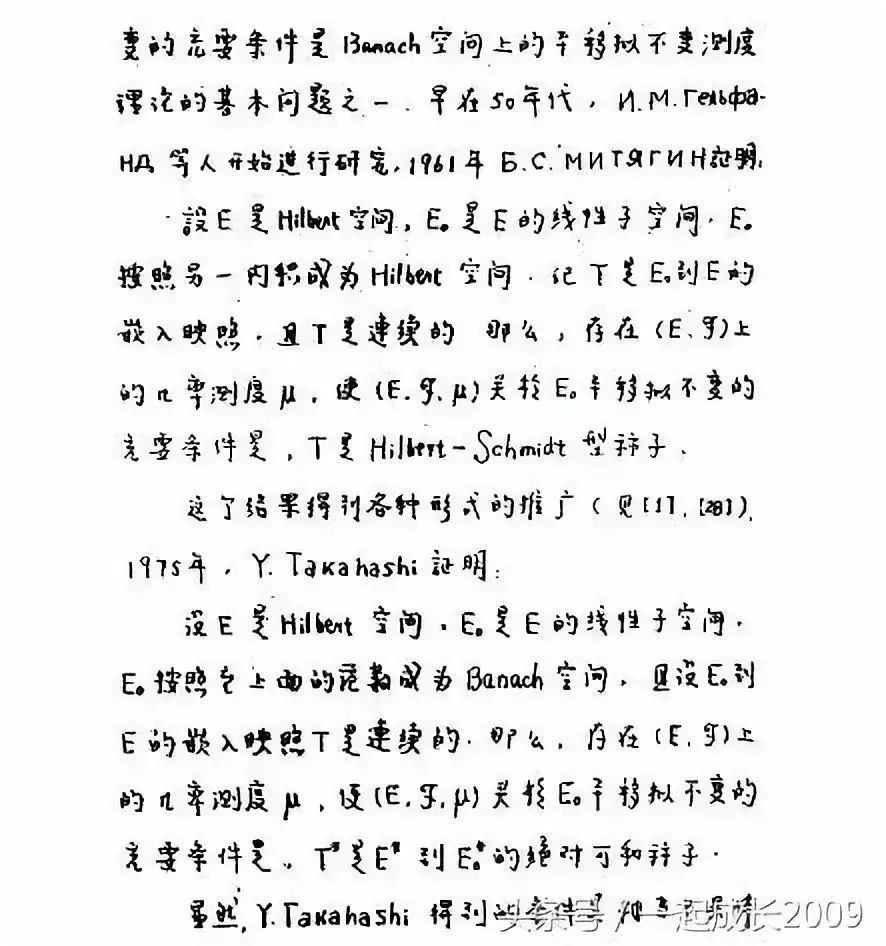 变的充要条件是 Banach 空间上的平移拟不变测度
理论的基本问题之一.早在50年代,И.М.Гельфа-
нд 等人开始进行研究,1961年 Б.С.МИТЯГИН証明:
設E是Hilbert空间,E₀是E的线性子空间.E₀
按照另一内积成为Hilbert 空间.记T是E₀到E的
嵌入映照.且T是連续的 那么,存在(E、𝓕)上
的几率测度μ,使(E.𝓕.μ)关於E₀平移拟不变的
充要条件是,T是Hilbert-Schmidt 型祘子.
这个结果得到各种形式的推广(见[1],[28]),
1975年,Y.Takahashi証明:
设E是Hilbert 空间,E₀是E的线性子空间.
E₀按照它上面的范数成为Banach空间,且设E₀到
E的嵌入映照T是連续的.那么,存在(E,𝓕)上
的几率测度μ,使(E,𝓕,μ)关於E₀平移拟不变的
充要条件是,T*是E*到E₀*的绝对可和祘子.
虽然,Y.Takahashi 得到的条件是
头条号/一起成长2009